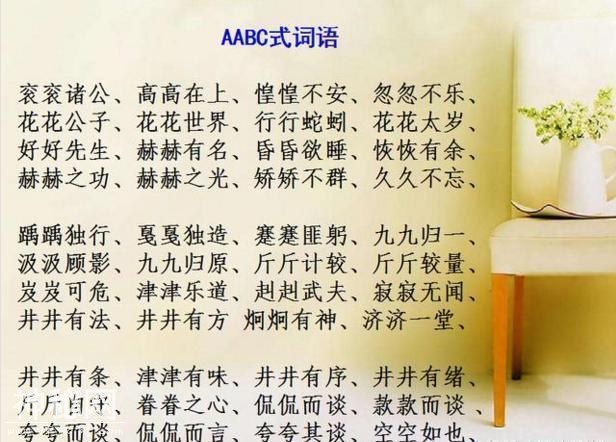 AABC式词语
衮衮诸公、高高在上、惶惶不安、忽忽不乐、
花花公子、花花世界、行行蛇蚓、花花太岁、
好好先生、赫赫有名、昏昏欲睡、恢恢有余、
赫赫之功、赫赫之光、矫矫不群、久久不忘、
踽踽独行、戛戛独造、蹇蹇匪躬、九九归一、
汲汲顾影、九九归原、斤斤计较、斤斤较量、
岌岌可危、津津乐道、赳赳武夫、寂寂无闻、
井井有法、井井有方 炯炯有神、济济一堂、
井井有条、津津有味、井井有序、井井有绪、
斤斤自守、眷眷之心、侃侃而谈、款款而谈、
夸夸而谈、侃侃而言、夸夸其谈、空空如也、